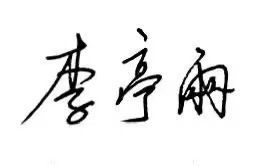 李亭雨